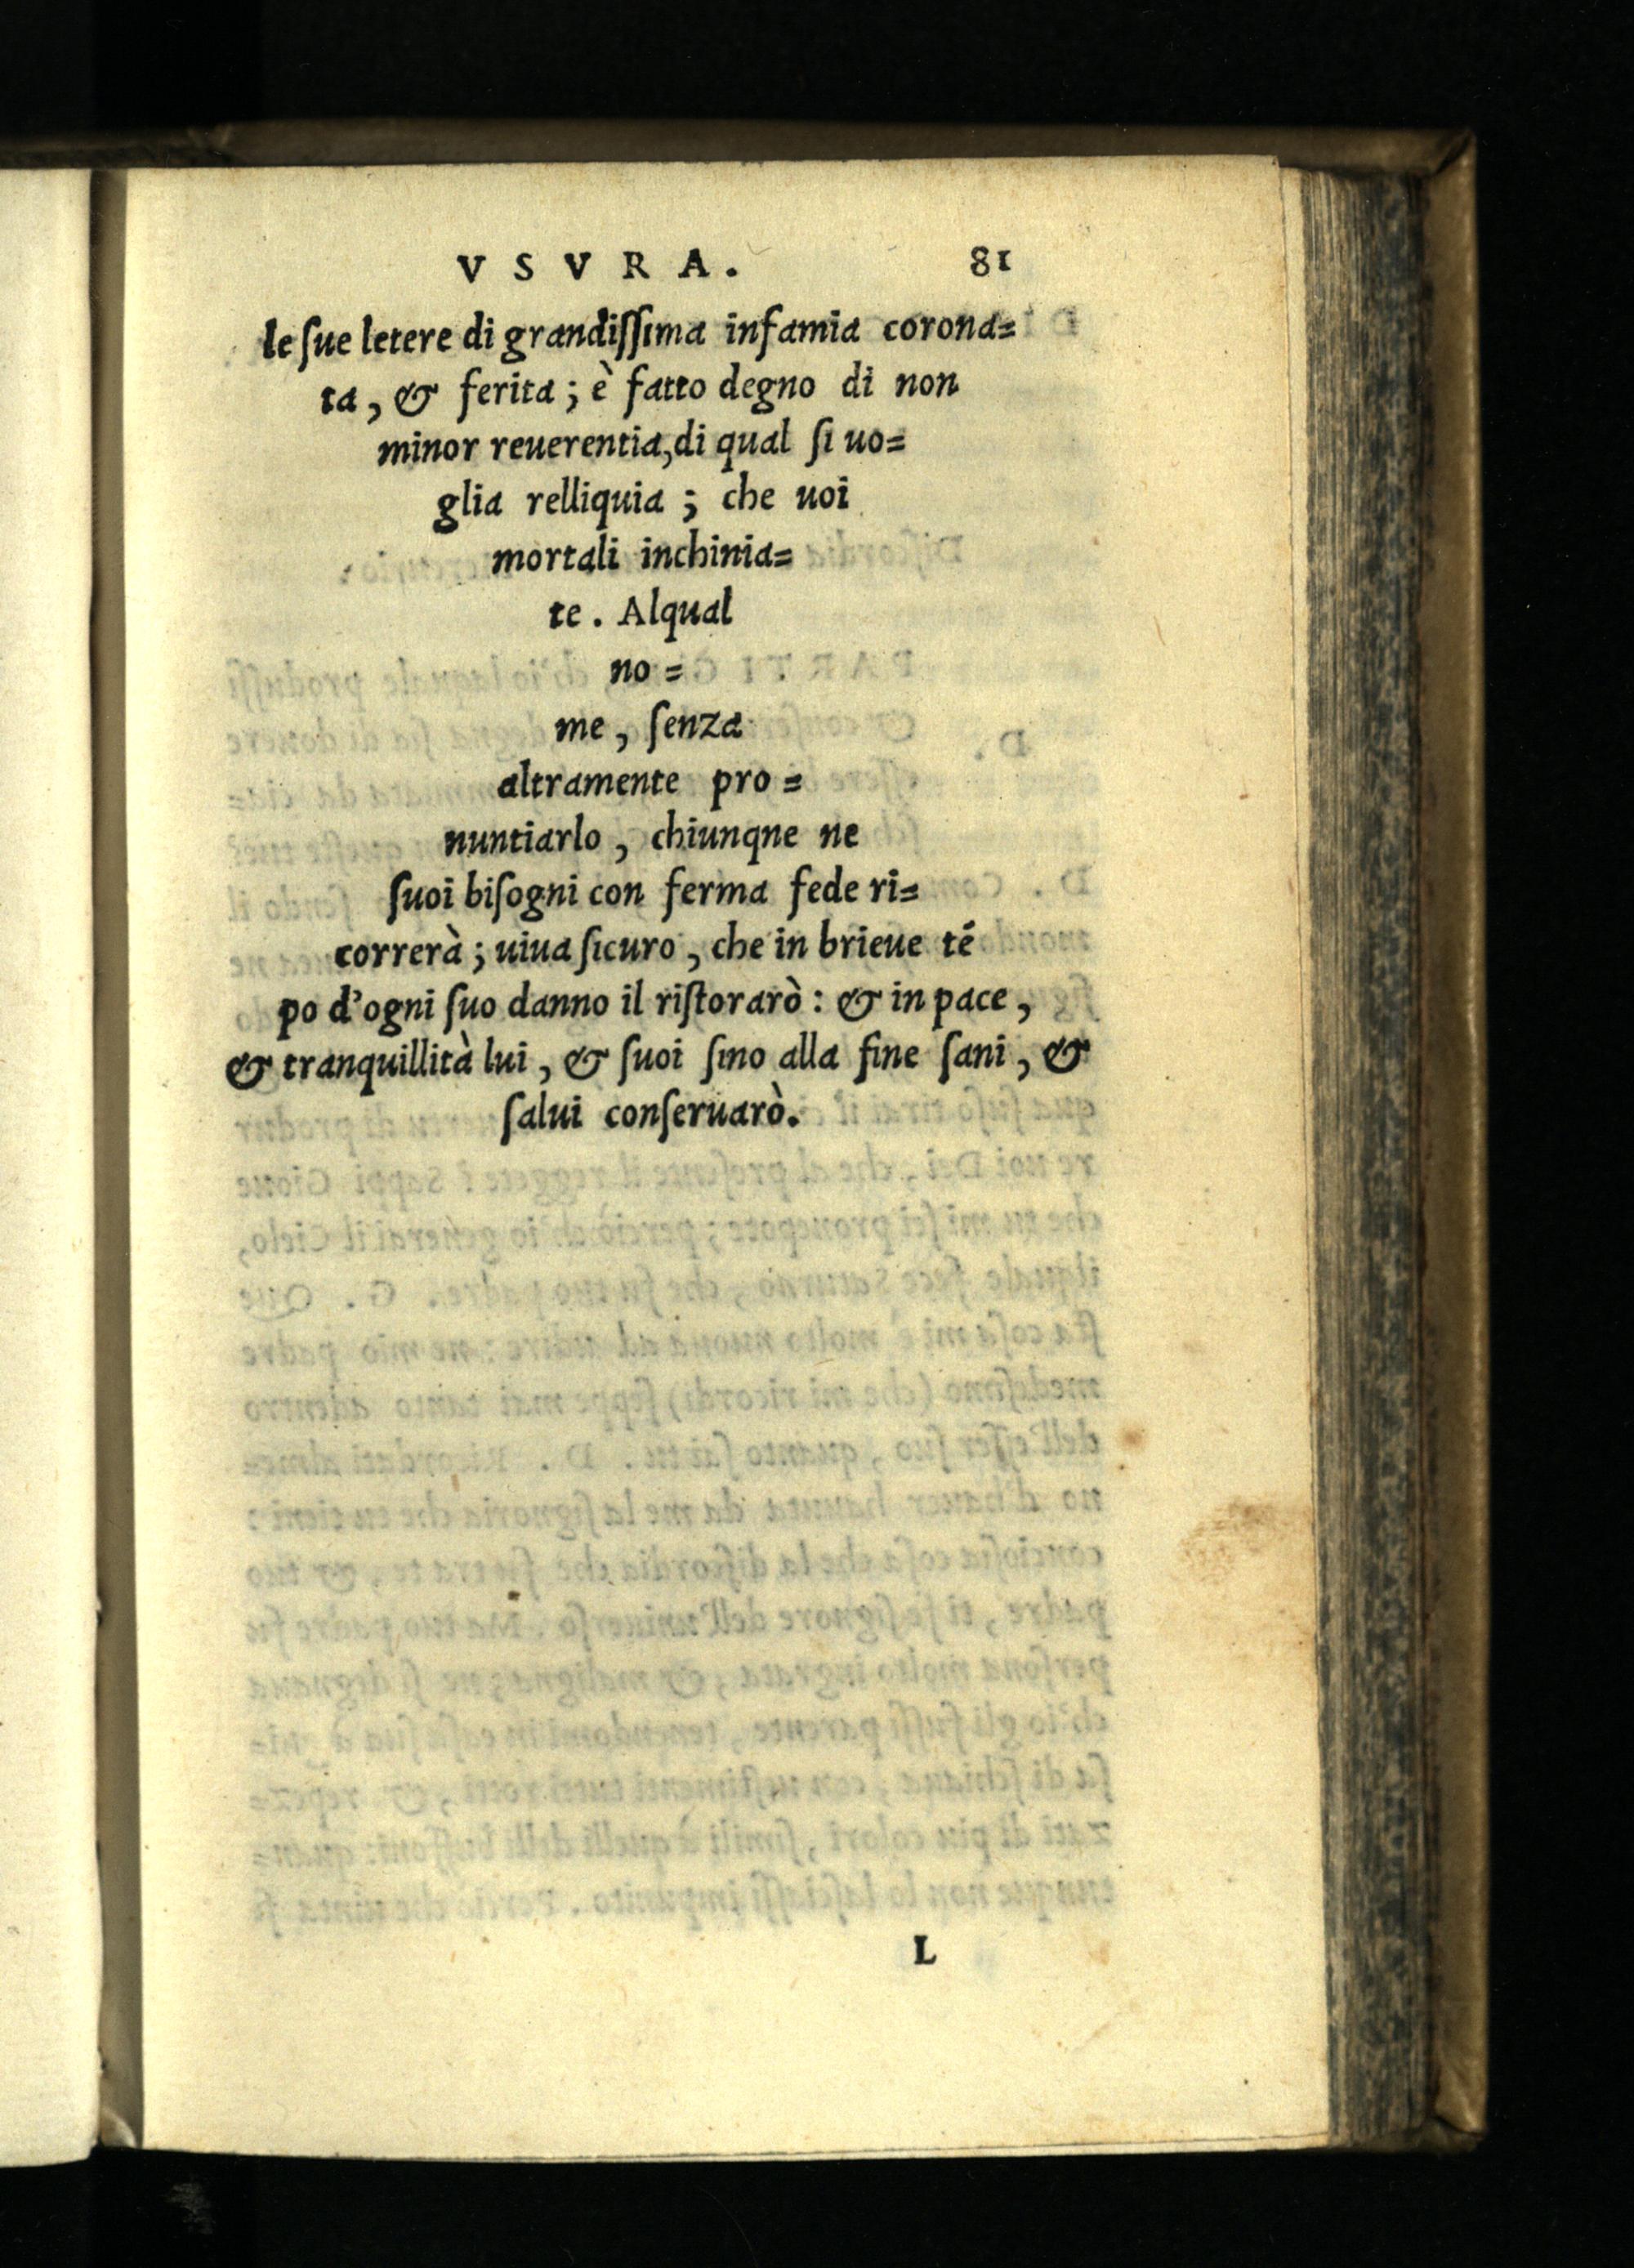 VSVRA. 81
le ſue letere di grandiſſima infamia corona=
ta, & ferita; è fatto degno di non
minor reuerentia, di qual ſi uo=
glia relliquia; che uoi
mortali inchinia=
te. Alqual
no=
me, ſenza
altramente pro=
nuntiarlo, chiunqne ne
ſuoi biſogni con ferma fede ri=
correrà; uiua ſicuro, che in brieue té
po d'ogni ſuo danno il riſtorarò: & in pace,
& tranquillità lui, & ſuoi ſino alla fine ſani, &
ſalui conſeruarò.
L